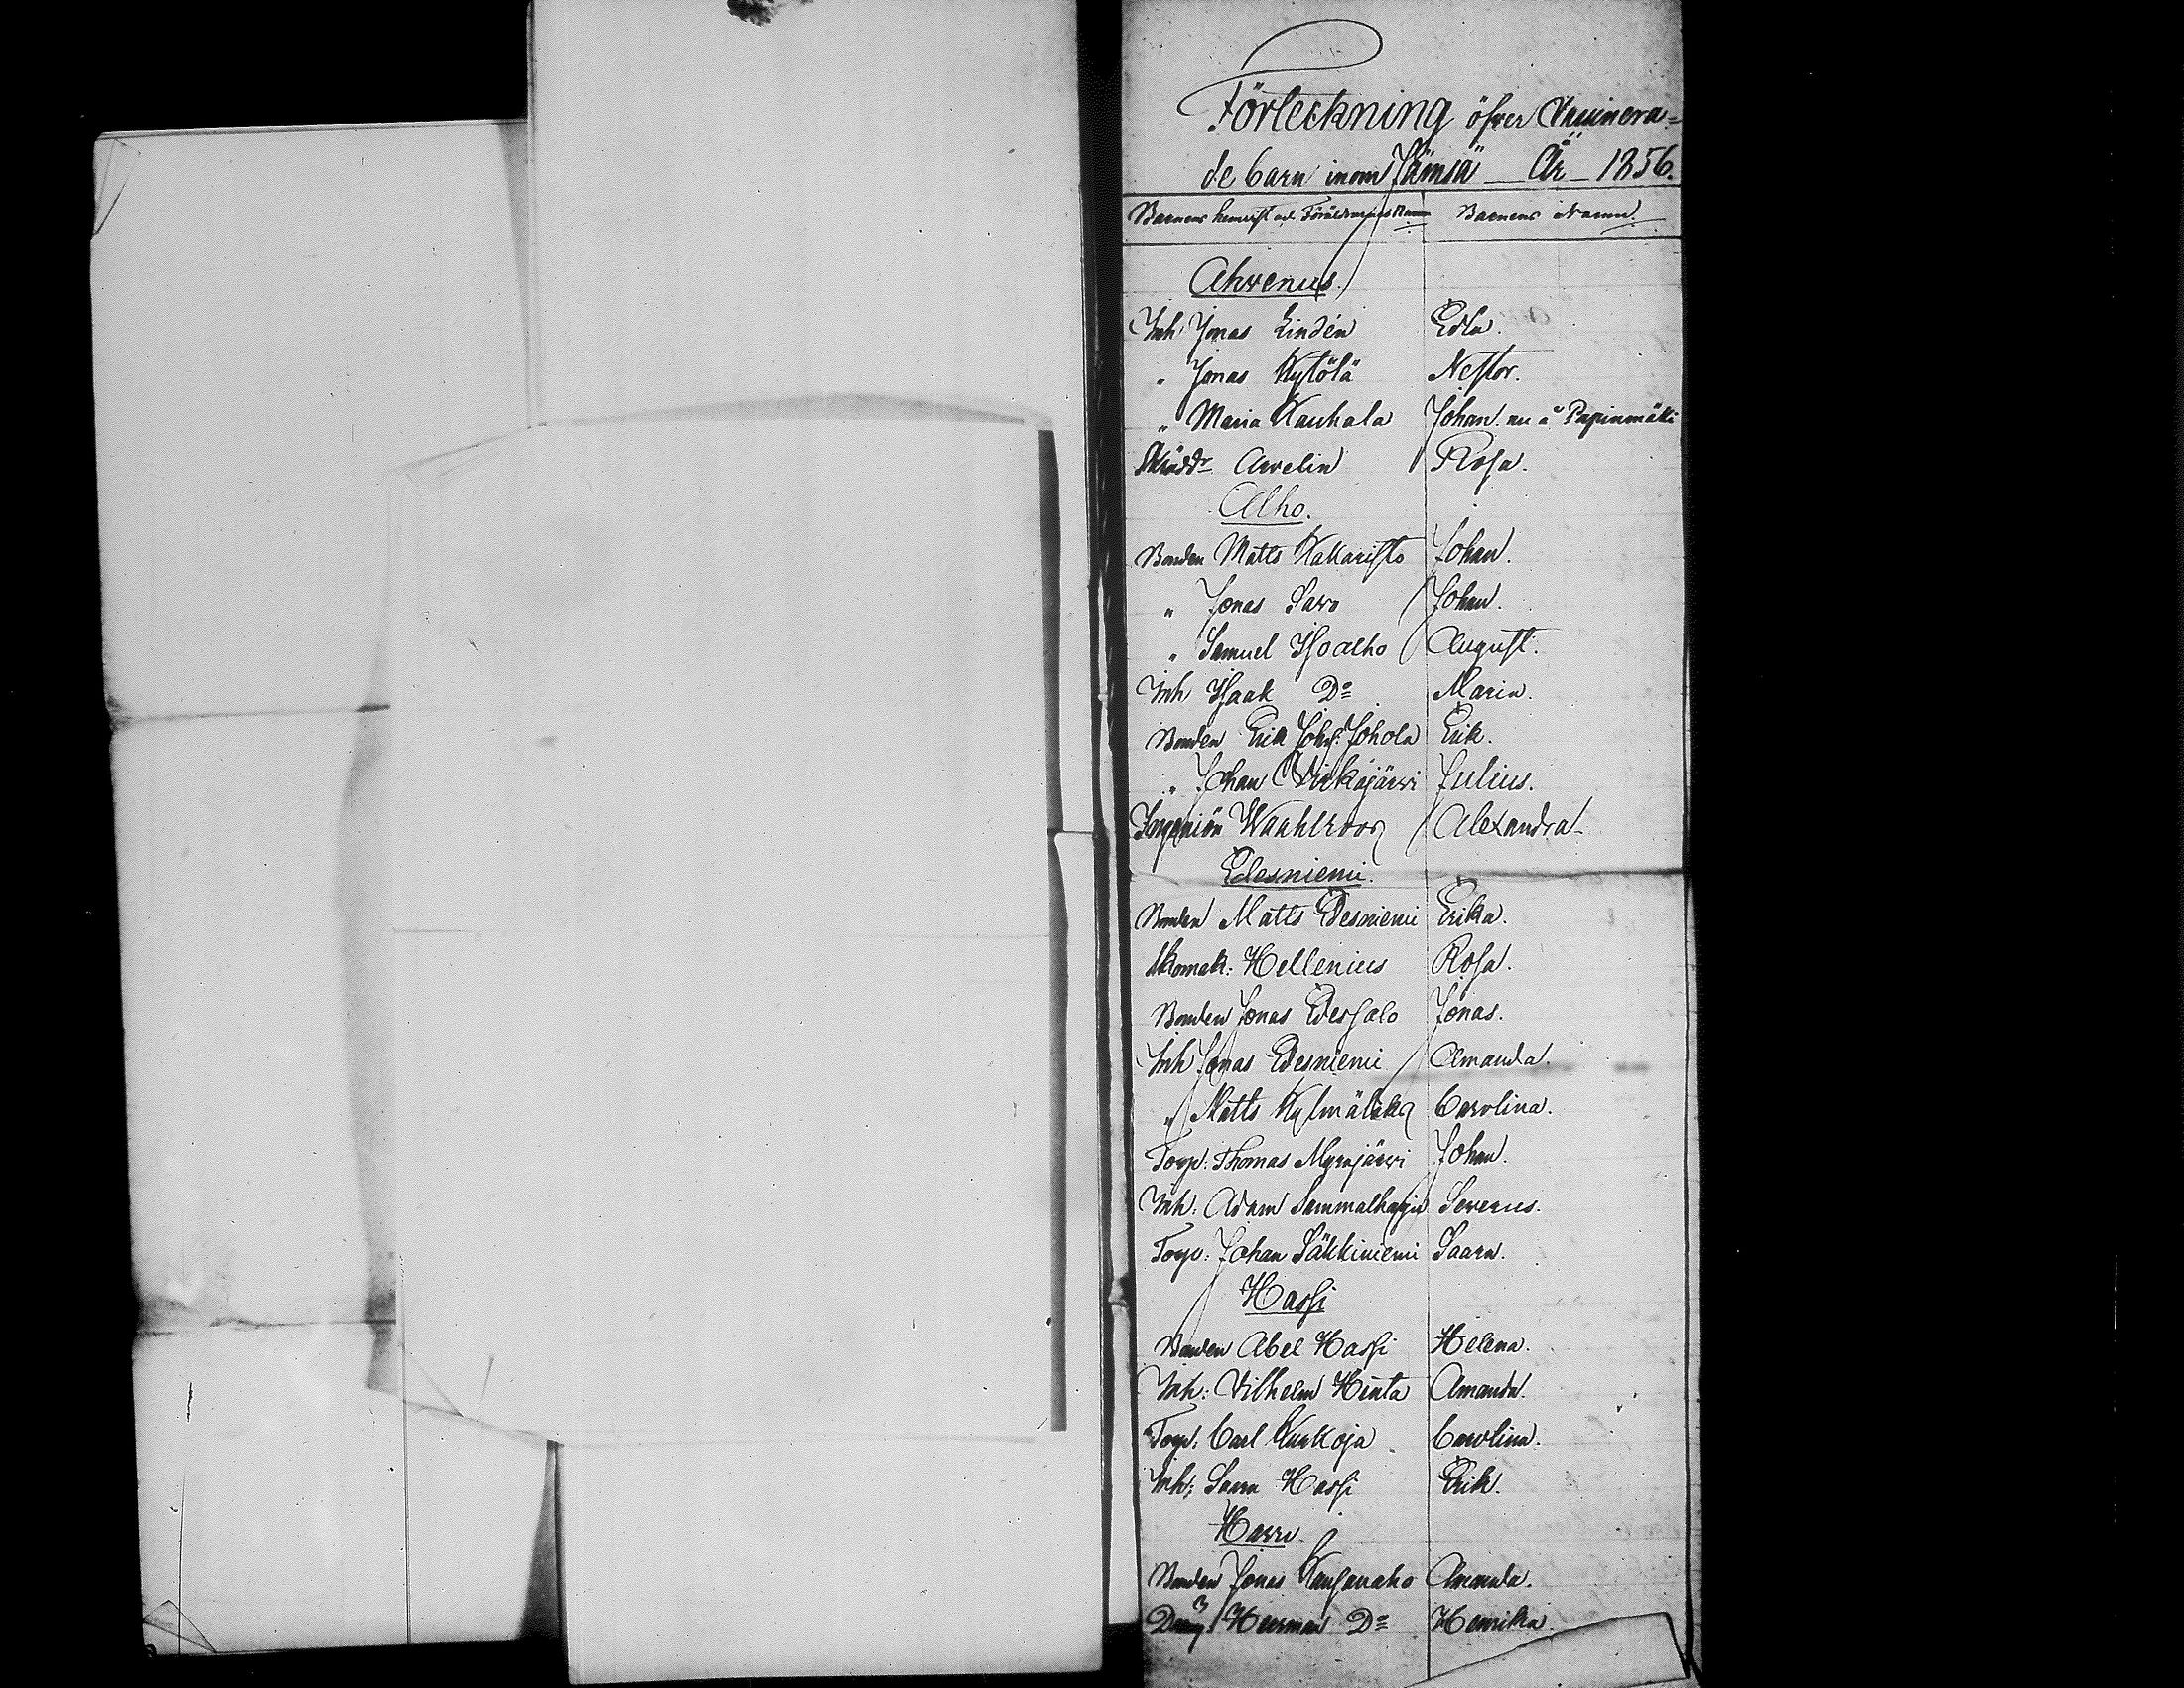 Förteckning öfver Vaccinera=
de barn inom Jämsä - År - 1856.
Barnens hemvist och Föräldrarnas Namn Barnens Namn.
Ahvenus.
Inh Jonas Lindén Edla.
" Jonas Kytölä Nestor.
" Maria Kauhala Johan nu å Papinmäki
Skrädd: Avelin Rosa.
Alho.
Bonden Matts Kakaristo Johan.
" Jonas Savo Johan.
" Samuel Isoalho August.
Inh Isaak Do Maria.
Bonden Erik Johs: Johola Erik.
" Johan Virkajärvi Julius.
Ingeniör Waahlroos Alexandra
Edesniemi.
Bonden Matts Edesniemi Erika.
Skomak: Hellenius Rosa.
Bonden Jonas Edessalo Jonas.
Inh Jonas Edesniemi Amanda.
" Matts Kylmälaka Carolina.
Torp: Thomas Myrajärvi Johan.
Inh: Adam Sammalharju Severus.
Torp: Johan Säkkiniemi Saara.
Hassi
Bonden Abel Hassi Helena.
Inh: Vilhelm Hinta Amanda.
Torp: Carl Kurkoja Carolina.
Inh: Saara Hassi Erik.
Harru.
Bonden Jonas Kansanaho Amanda.
Herman Do Henrika.